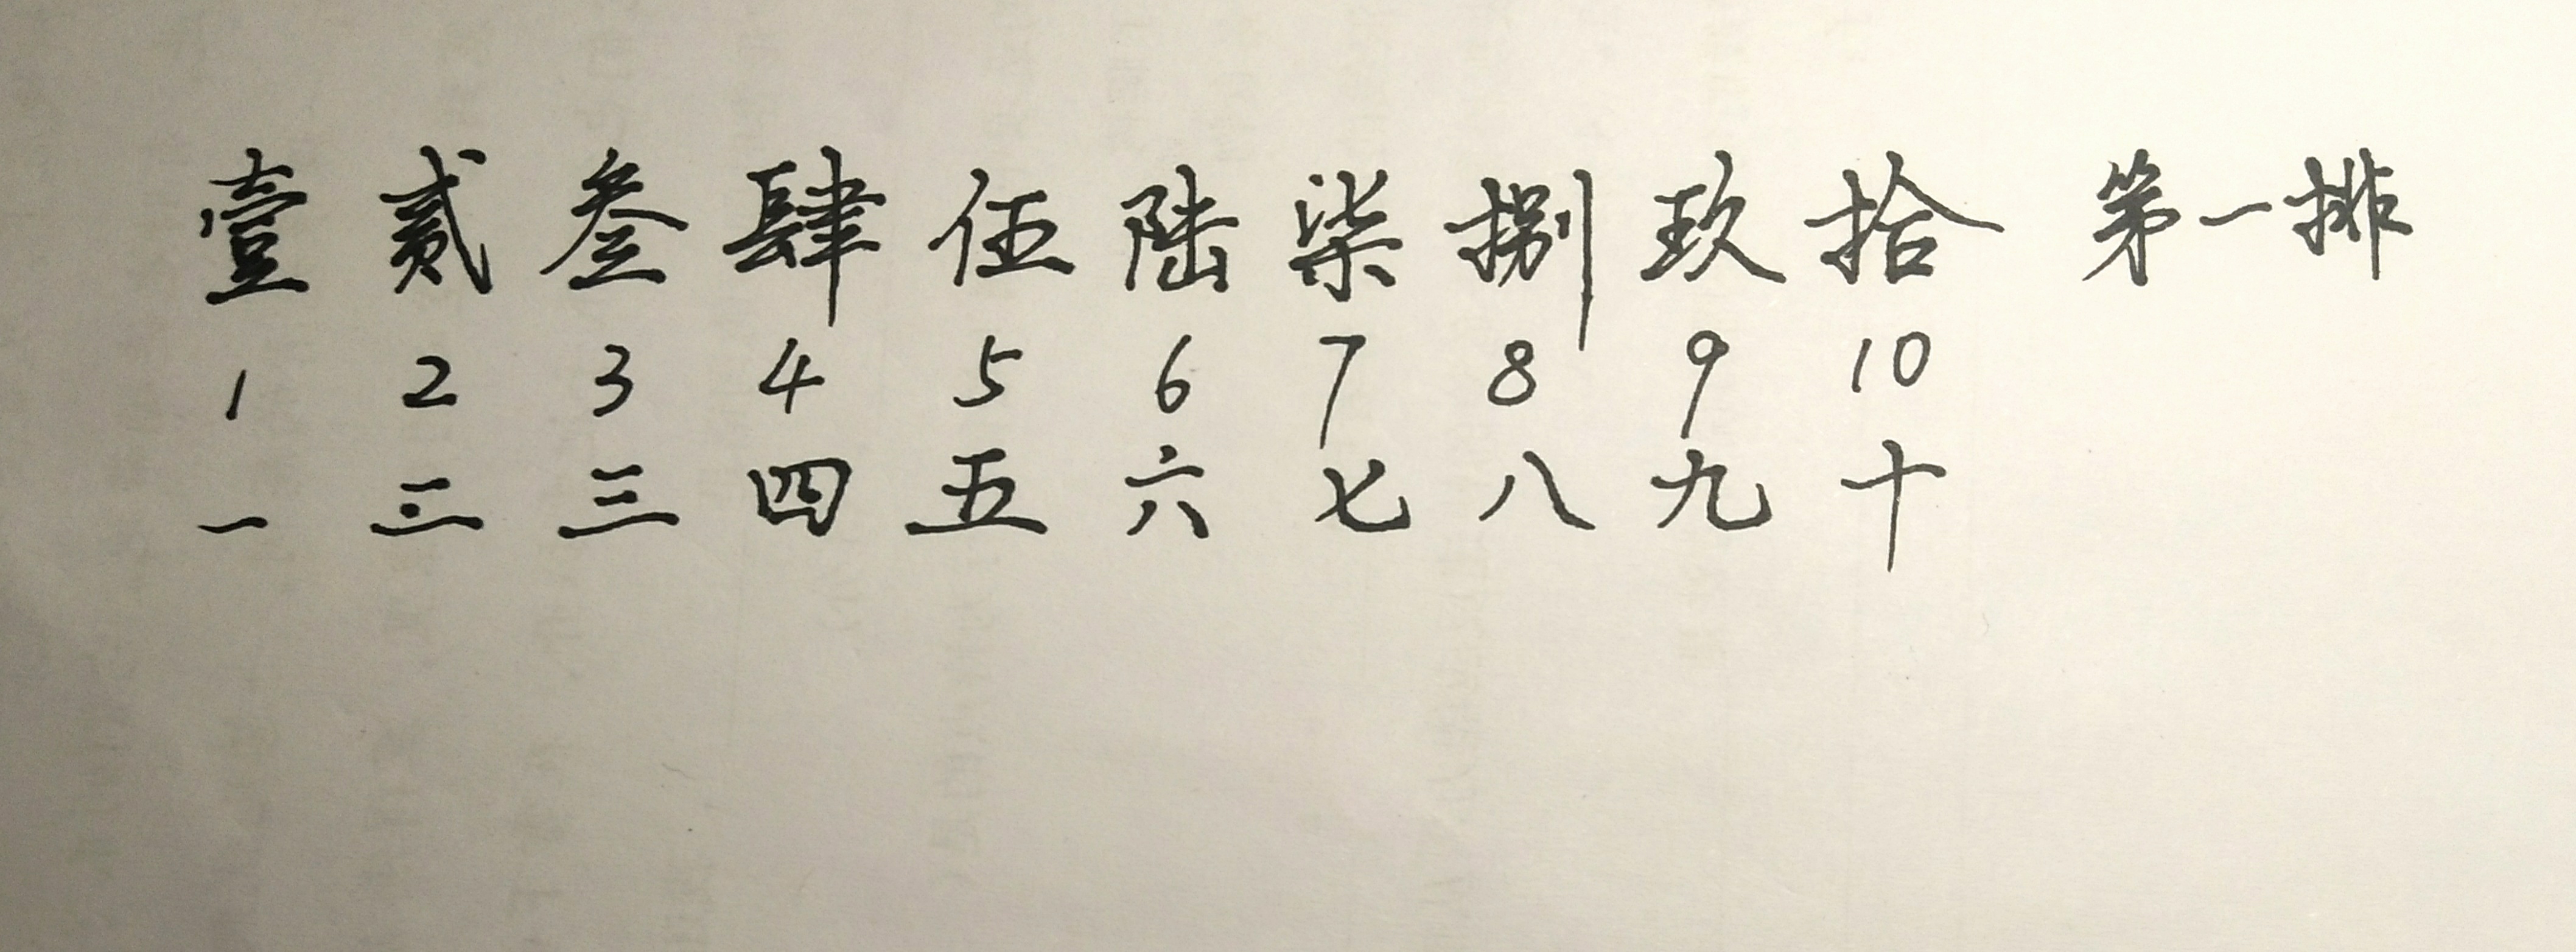 壹 贰 叁 肆 伍 陆 柒 捌 玖 拾 第一排
1 2 3 4 5 6 7 8 9 10
一 三 三 四 五 六 七 八 九 十